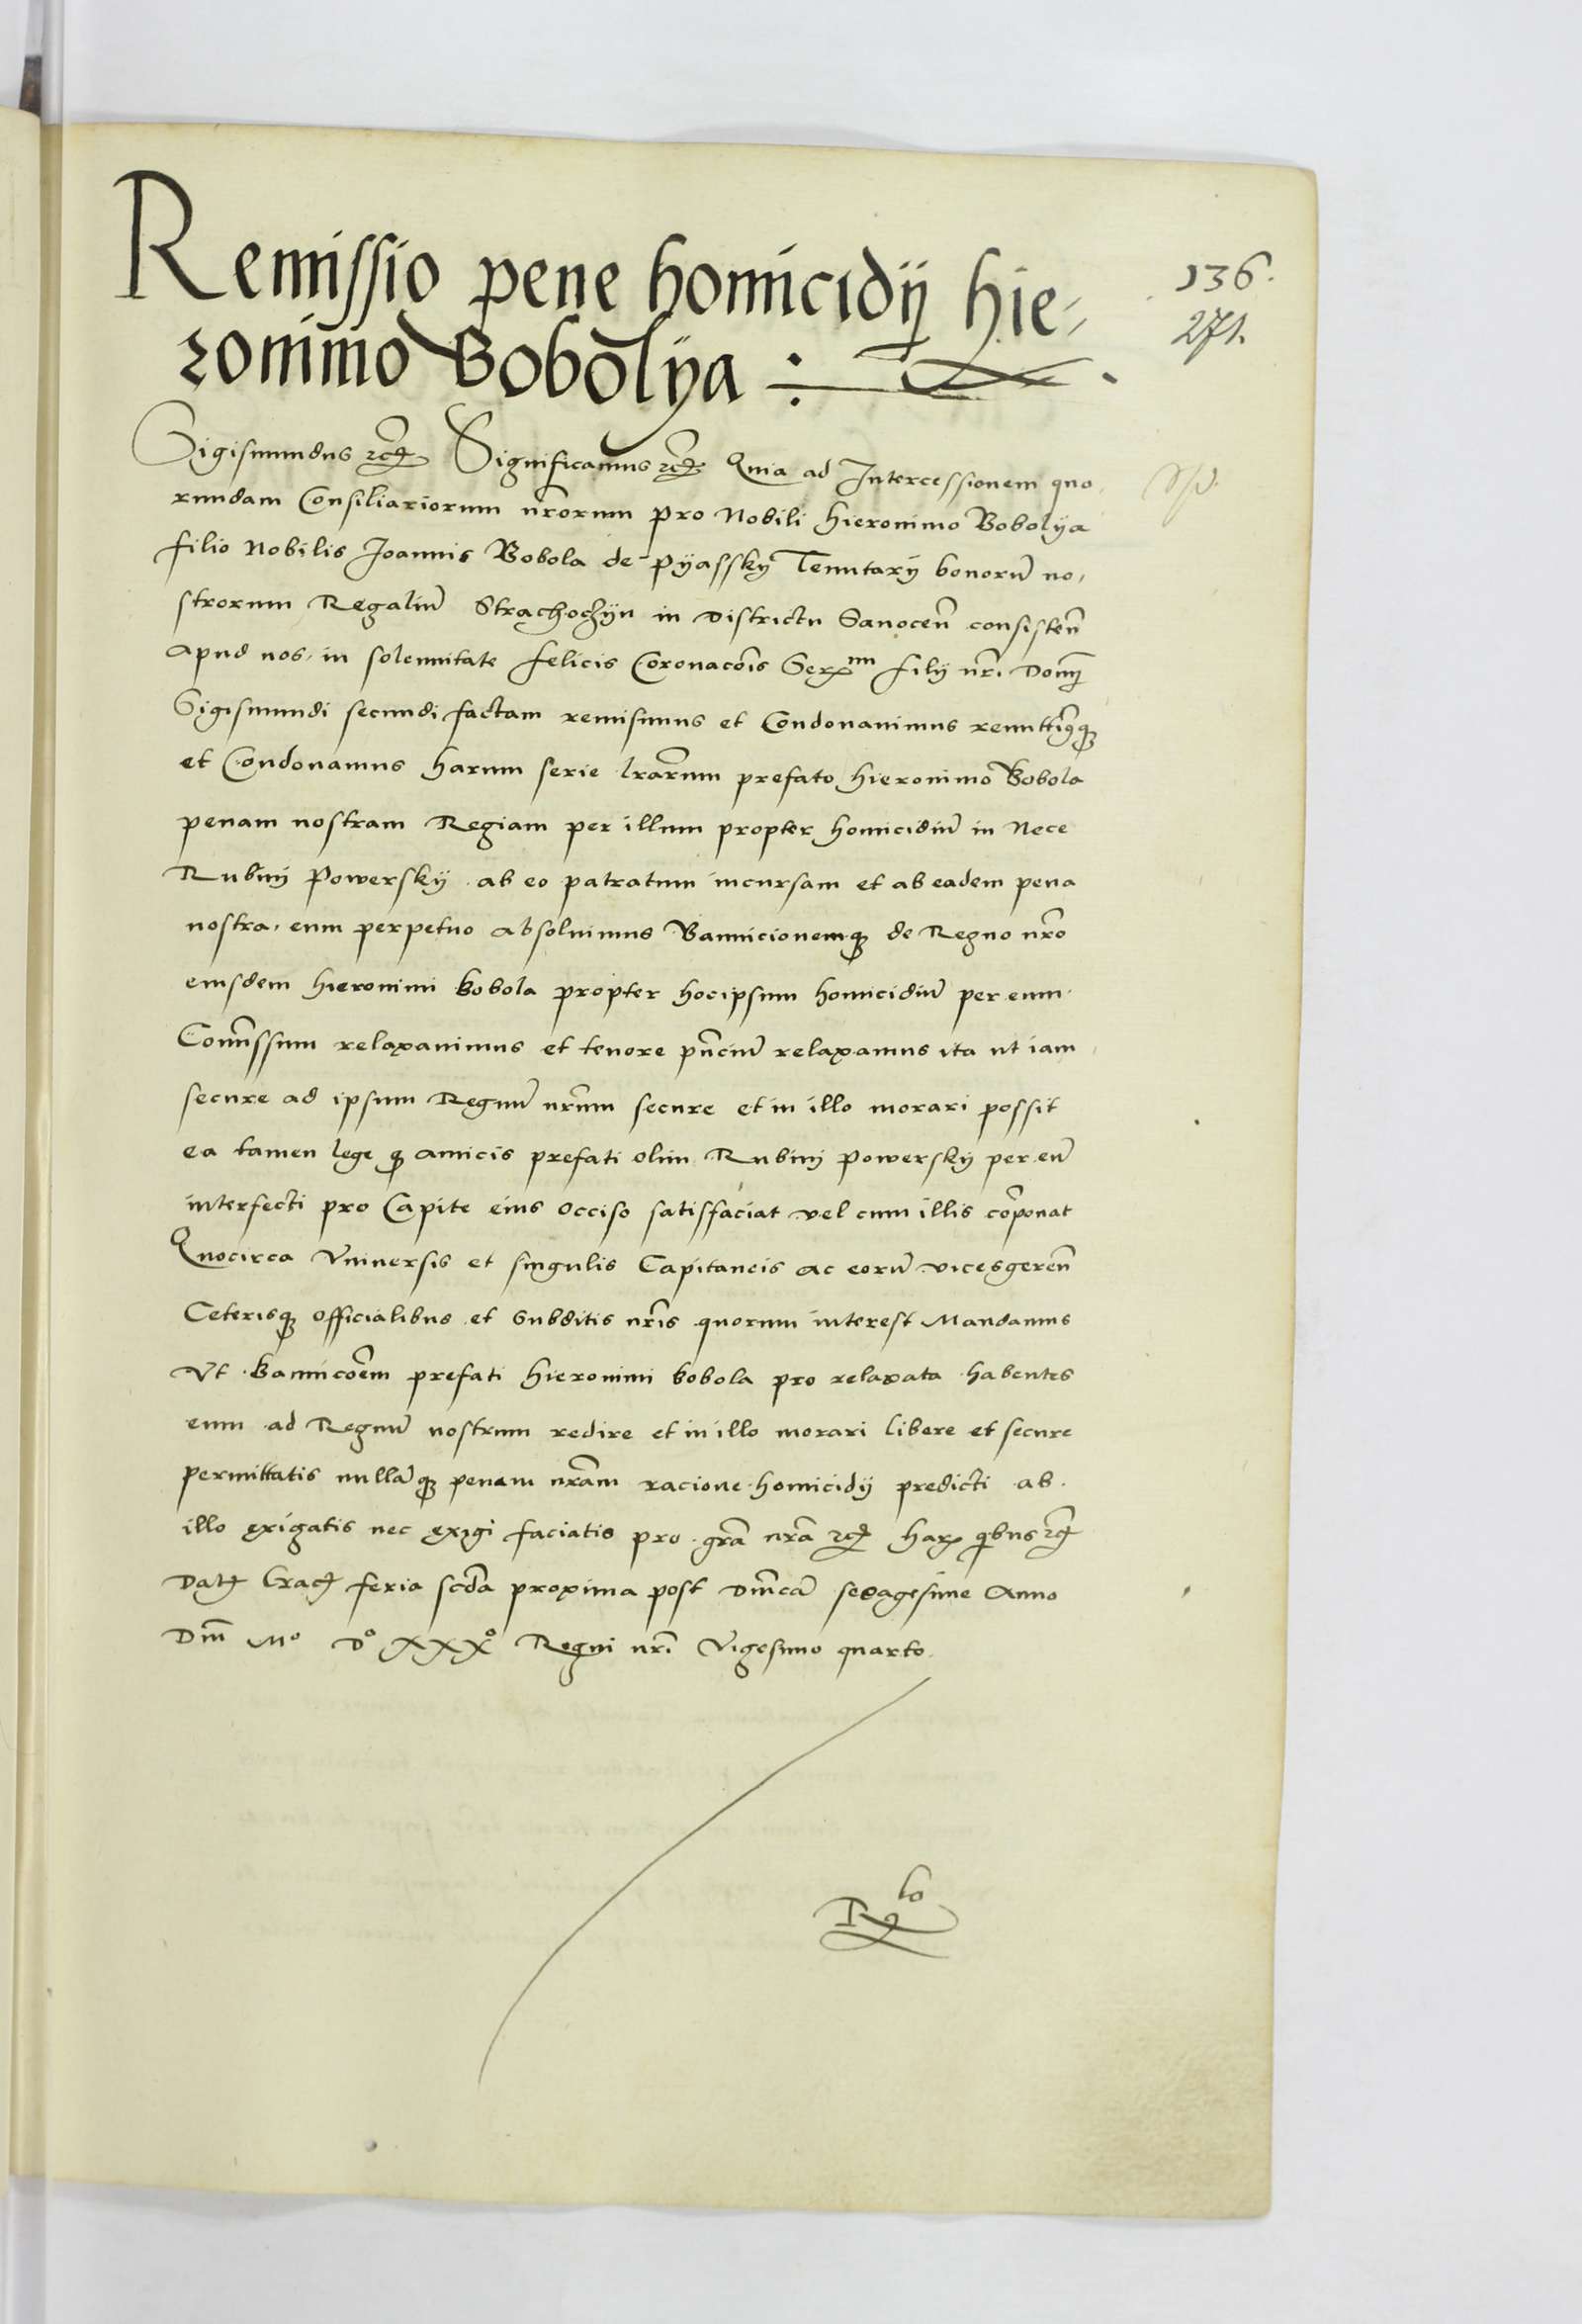 Remissio pene homicidij Hie-
ronimo Bobolya :
136.
271.
Sigismundus etc. Significamus etc. Quia ad Intercessionem quo-
rundam Consiliariorum nrorum pro Nobili Hieronimo Bobolya
filio Nobilis Joannis Bobola de Pyassky Tenutarij bonoru no-
strorum Regaliu Strachoczyn in Districtu Sanocen consisten
apud nos in solennitate felicis Coronacois Ser filij nri Domi
Sigismundi secundi factam remisimus et Condonavimus remittimusque
et Condonamus harum serie lrarum prefato Hieronimo Bobola
penam nostram Regiam per illum propter homicidiu in Nece
Rubini Powersky ab eo patratum incursam et ab eadem pena
nostra eum perpetuo absolvimus Bannicionemque de Regno nro
eiusdem Hieronimi Bobola propter hocipsum homicidiu per eum
Comissum relaxavimus et tenore pnciu relaxamus ita ut iam
secure ad ipsum Regnu nrum secure et in illo morari possit
ea tamen lege q amicis prefati olim Rubini Powersky per eu
interfecti pro Capite eius occiso satisfaciat vel cum illis coponat
Quocirca Universis et singulis Capitaneis ac eoru vicesgeren
Ceterisque officialibus et Subditis nris quorum interest Mandamus
Ut Bannicoem prefati Hieronimi Bobola pro relaxata habentes
eum ad Regnu nostrum redire et in illo morari libere et secure
permittatis nullaque penam nram racione homicidij predicti ab
illo exigatis nec exigi faciatis pro gra nra etc. Har qibus etc.
Dat Crac feria scda proxima post Dmcam sexagesime Anno
Dm Mo Do XXXo Regni nri Vigesimo quarto